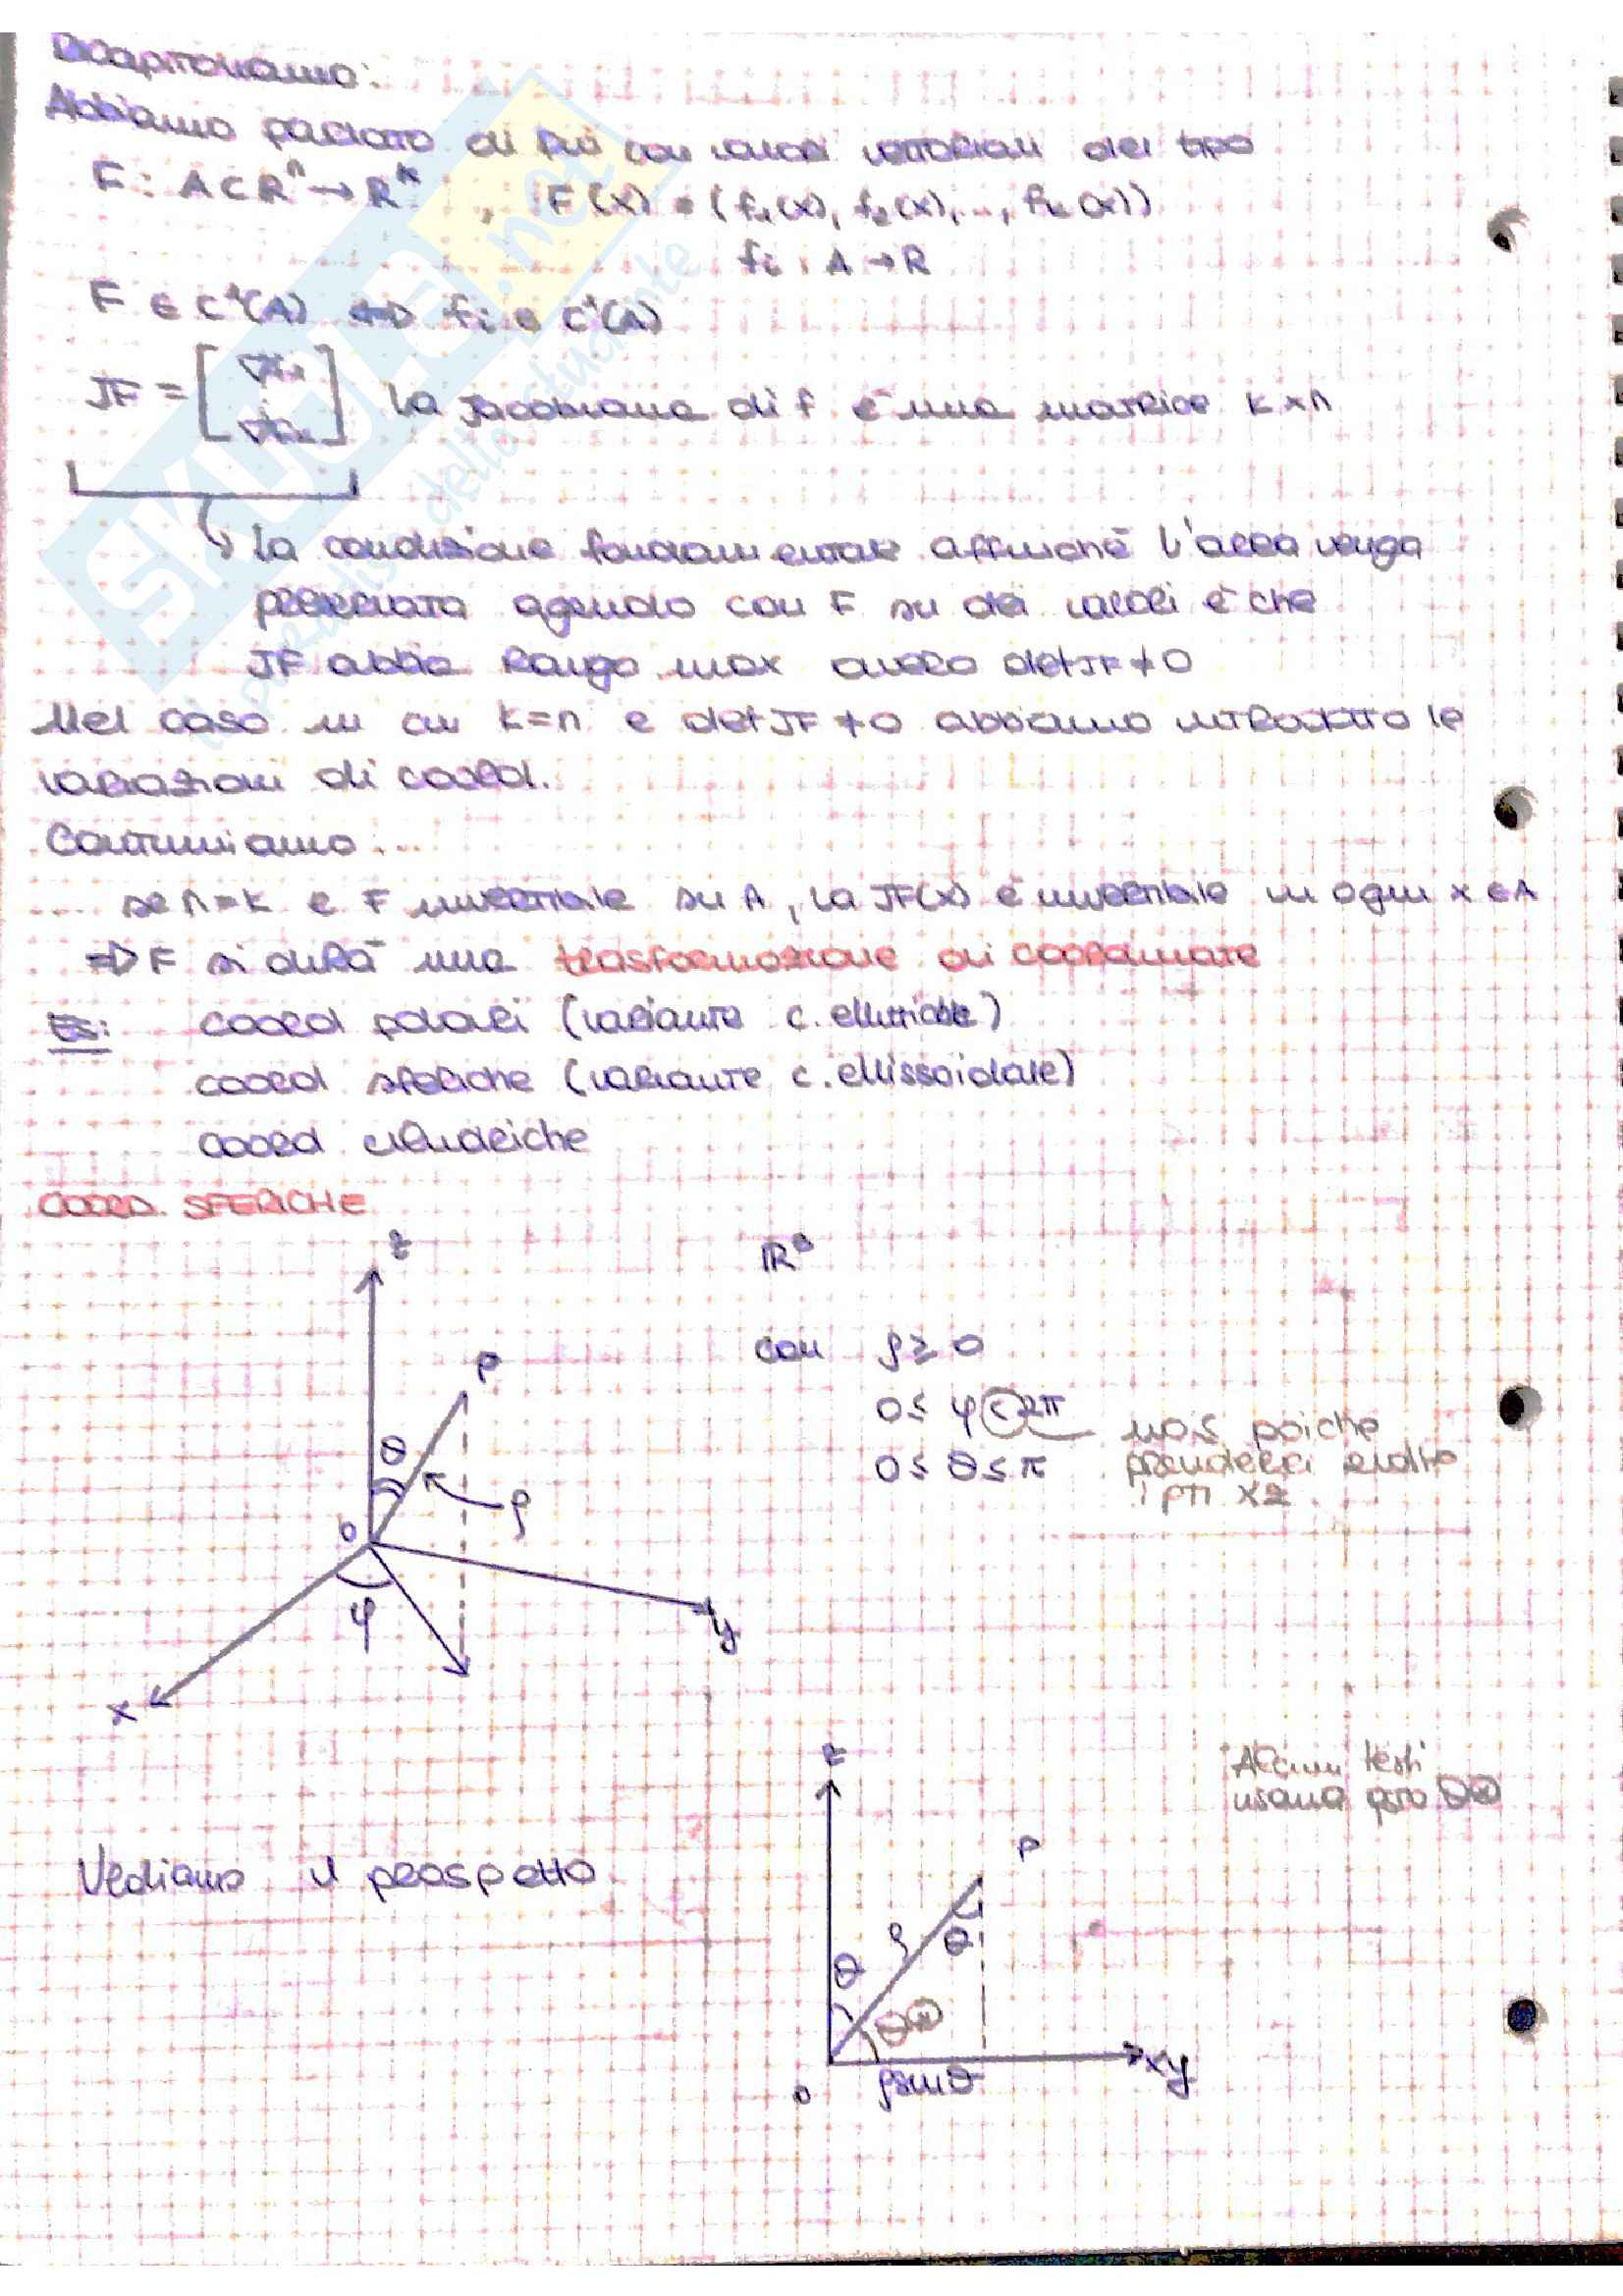 Ricapitoliamo:
Abbiamo parlato di fni con valori vettoriali del tipo
F: A⊂R^n → R^k , F(x) = (f₁(x), f₂(x), ..., fk(x))
fi: A → R
F ∈ C¹(A) ⇔ fi ∈ C¹(A)
JF = [∇f₁ ⋮ ∇fk] la Jacobiana di f è una matrice k×n
la condizione fondamentale affinché l'area venga
preservata agendo con F su dei valori è che
JF abbia rango max ovvero detJF≠0
Nel caso in cui k=n e detJF≠0 abbiamo introdotto le
variazioni di coord.
Continuiamo...
se n=k e F invertibile su A, la JF(x) è invertibile in ogni x∈A
⇒ F si dirà una trasformazione di coordinate
Es: coord polari (variante c. ellittiche)
coord sferiche (variante c. ellissoidale)
coord cilindriche
COORD. SFERICHE
z
P
θ
ρ
0
φ
x
y
R³
con ρ ≥ 0
0 ≤ φ < 2π
no ≤ poiché
prenderei
i pti x2
0 ≤ θ ≤ π
Vediamo il prospetto
z
P
ρ
θ
θ
θ*
0
ρsinθ
xy
Alcuni testi
usano θ*
SKUOLA.net
il paradiso dello studente